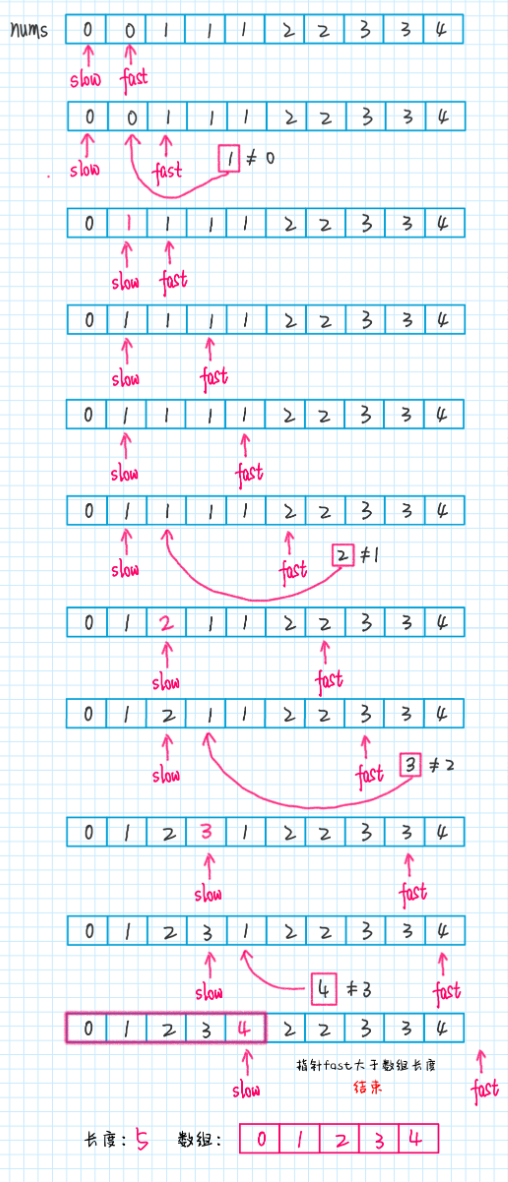 nums 0 0 1 1 1 2 2 3 3 4
slow fast
0 0 1 1 1 2 2 3 3 4
slow fast 1 ≠ 0
0 1 1 1 1 2 2 3 3 4
slow fast
0 1 1 1 1 2 2 3 3 4
slow fast
0 1 1 1 1 2 2 3 3 4
slow fast
0 1 1 1 1 2 2 3 3 4
slow fast 2 ≠ 1
0 1 2 1 1 2 2 3 3 4
slow fast
0 1 2 1 1 2 2 3 3 4
slow fast 3 ≠ 2
0 1 2 3 1 2 2 3 3 4
slow fast
0 1 2 3 1 2 2 3 3 4
slow 4 ≠ 3 fast
0 1 2 3 4 2 2 3 3 4
slow 指针fast大于数组长度 fast
结束
长度: 5 数组: 0 1 2 3 4